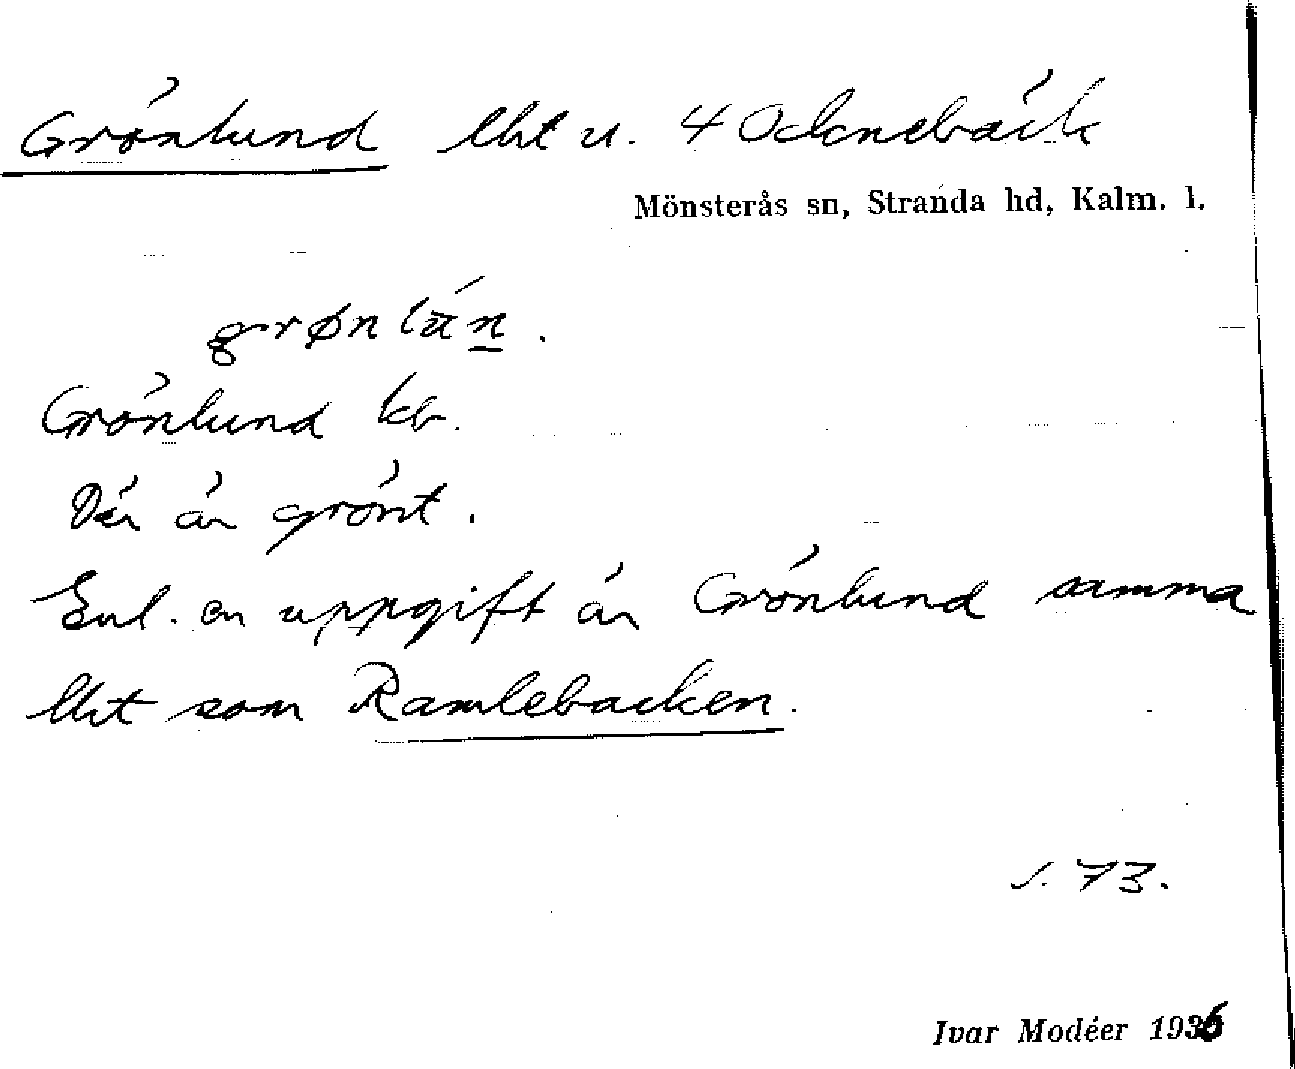 Grönlund lht u. 4 Ocknebäck
Mönsterås sn, Stranda hd, Kalm. l.
grønlún.
Grönlund kb.
Där är grönt.
Enl. en uppgift är Grönlund samma
lht som Ramlebacken.
s. 73.
Ivar Modéer 1936